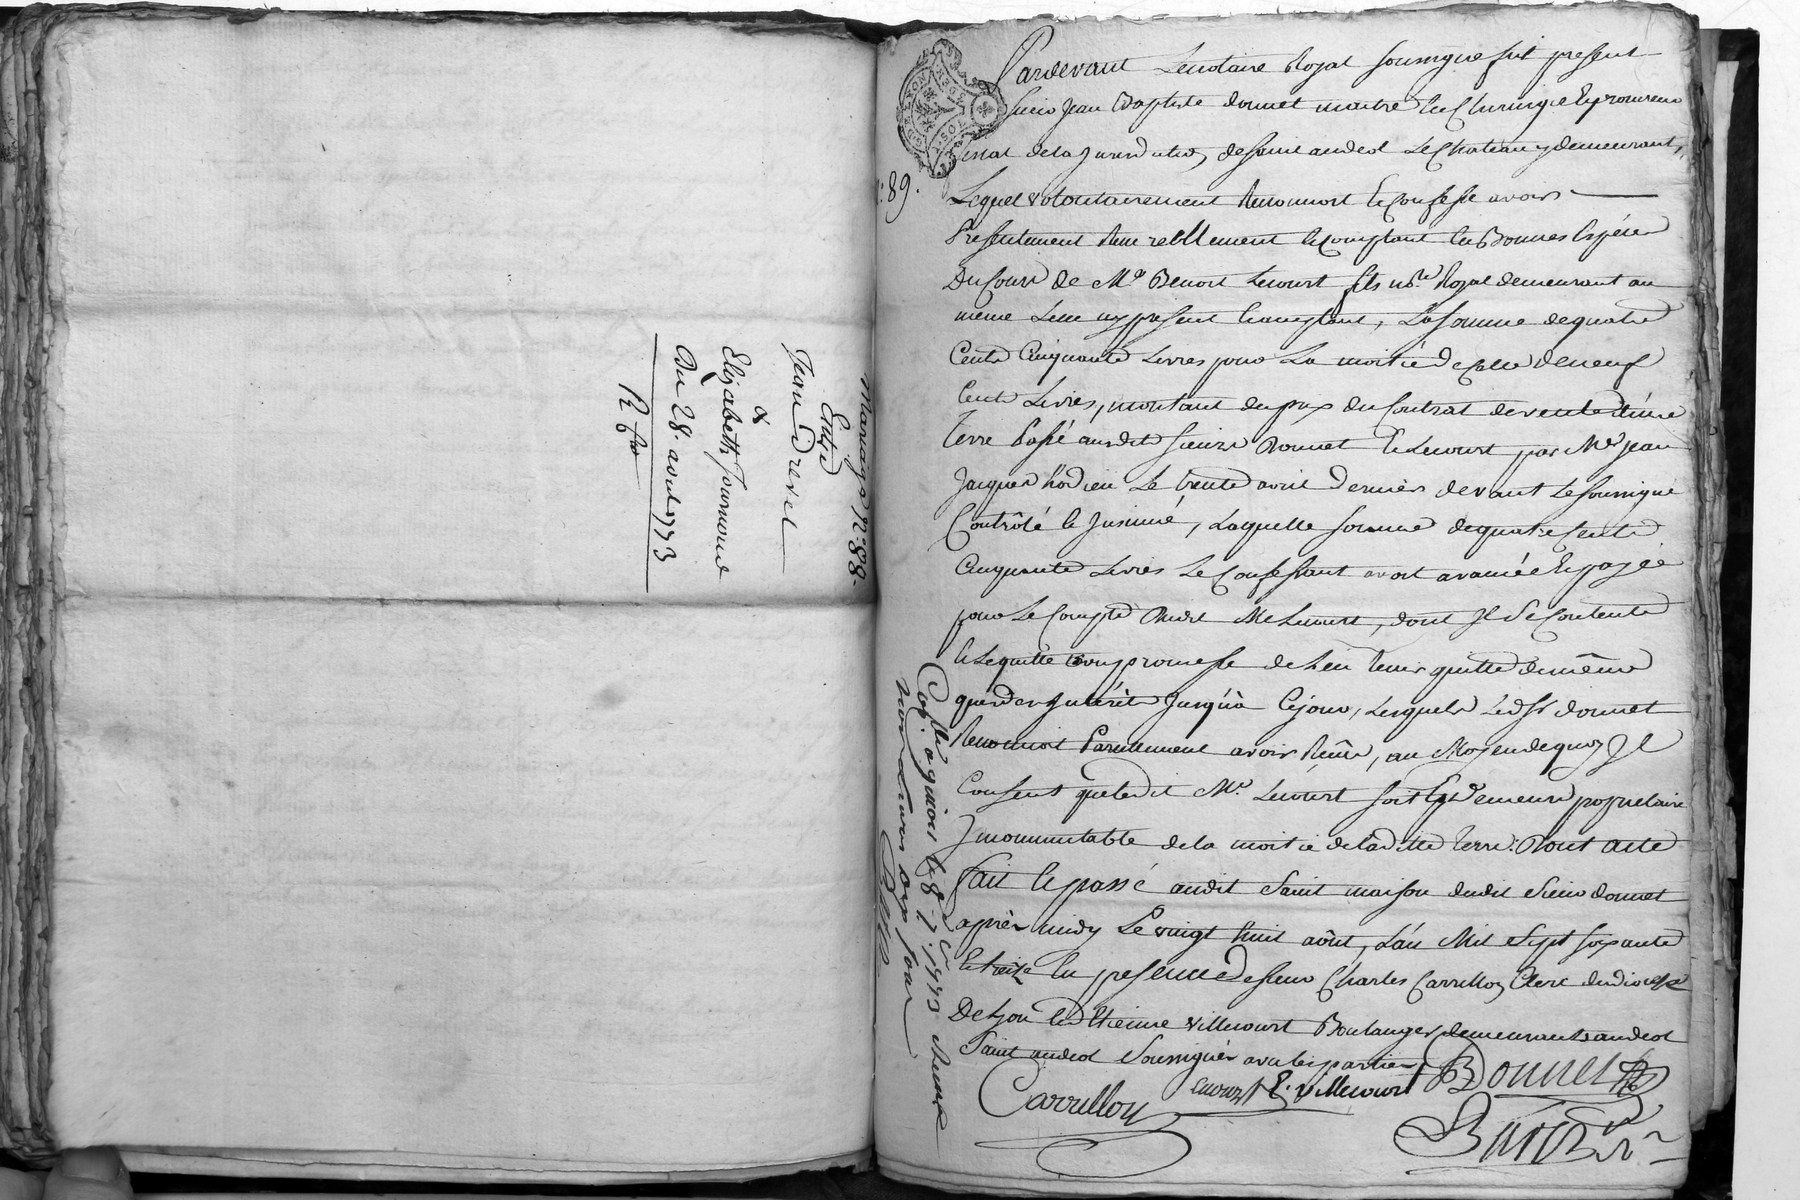 Mariage N.° 88.
Entre
Jean Drevet
&
Elizabeth Journoud
Du 28. avril 1773
N.° 89.
Pardevant Le notaire Royal soussigné fut present
sieur Jean Baptiste donnet maitre en Chirurgie Et procureur
fiscal de la Jurisdiction de saint andeol Le Chateau y demeurant,
Lequel volontairement Reconnoit & Confesse avoir
Presentement Reçu reellement & Comptant en Bonnes Espéces
Du Cours de Me. Benoit Lecourt fils nre. Royal demeurant au
même Lieu icy present acceptant, La somme de quatre
Cents Cinquante Livres pour La moitié de Celle de neuf
Cents Livres, montant du prix du Contrat de vente d'une
terre Passé audit sieurs Donnet & Lecourt par Me. Jean
Jacques hodieu Le trente avril Dernier devant Le soussigné
Contrôlé & Insinué, Laquelle somme de quatre Cents
Cinquante Livres Le Confessant avoit avancée Et payée
pour Le Compte Dudit Me Lecourt, dont Il Se Contente
& Le quitte avec promesse de L'en tenir quitte de même
que des Intérêts Jusqu'à Ce jour, Lesquels Ledit Sr. donnet
Reconnoit Pareillement avoir Reçus, au Moyen de quoy Il
Consent que Ledit Me. Lecourt soit Et Demeure propriétaire
Incommutable de la moitié de La ditte terre. Dont acte
Fait & passé audit Saint maison dudit Sieur donnet
après midy Le vingt huit août, L'an Mil Sept soixante
& treize En presence de sieur Charles Carrillon Clerc du diocese
De Lyon Et d'Etienne Villecourt Boulanger demeurants audeol
Saint andeol Soussignés avec les parties
Carrillon Lecourt E. villecourt Donnet